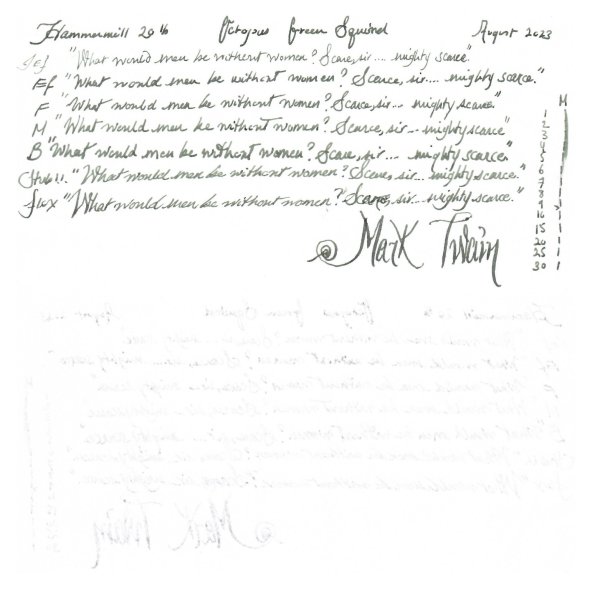 Hammermill 20 lb Octopus Green Squirrel August 2023
Eef "What would men be without women? Scarce, sir... mighty scarce."
Ef "What would men be without women? Scarce, sir... mighty scarce."
F "What would men be without women? Scarce, sir... mighty scarce."
M "What would men be without women? Scarce, sir... mighty scarce"
B "What would men be without women? Scarce, sir... mighty scarce."
Stub 1.1 "What would men be without women? Scarce, sir... mighty scarce."
flex "What would men be without women? Scarce, sir... mighty scarce."
Mark Twain
M
1
2
3
4
5
6
7
8
9
10
15
20
25
30